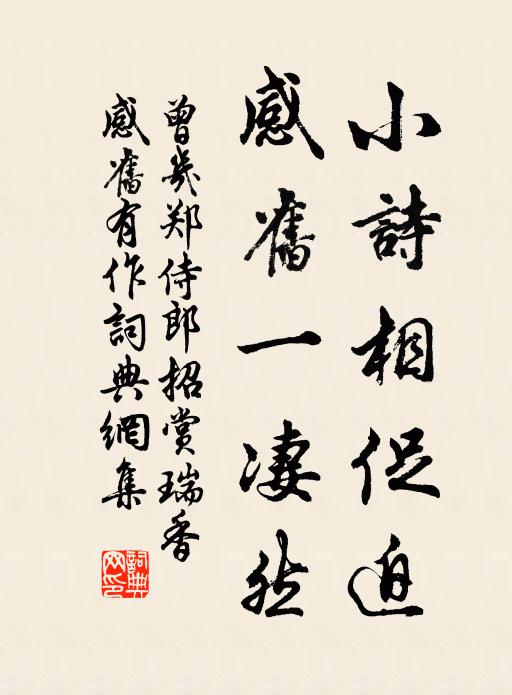 小詩相促迫
感舊一凄然
曾幾郑侍郎招赏瑞香
感舊有作詞典網集
詞典網印